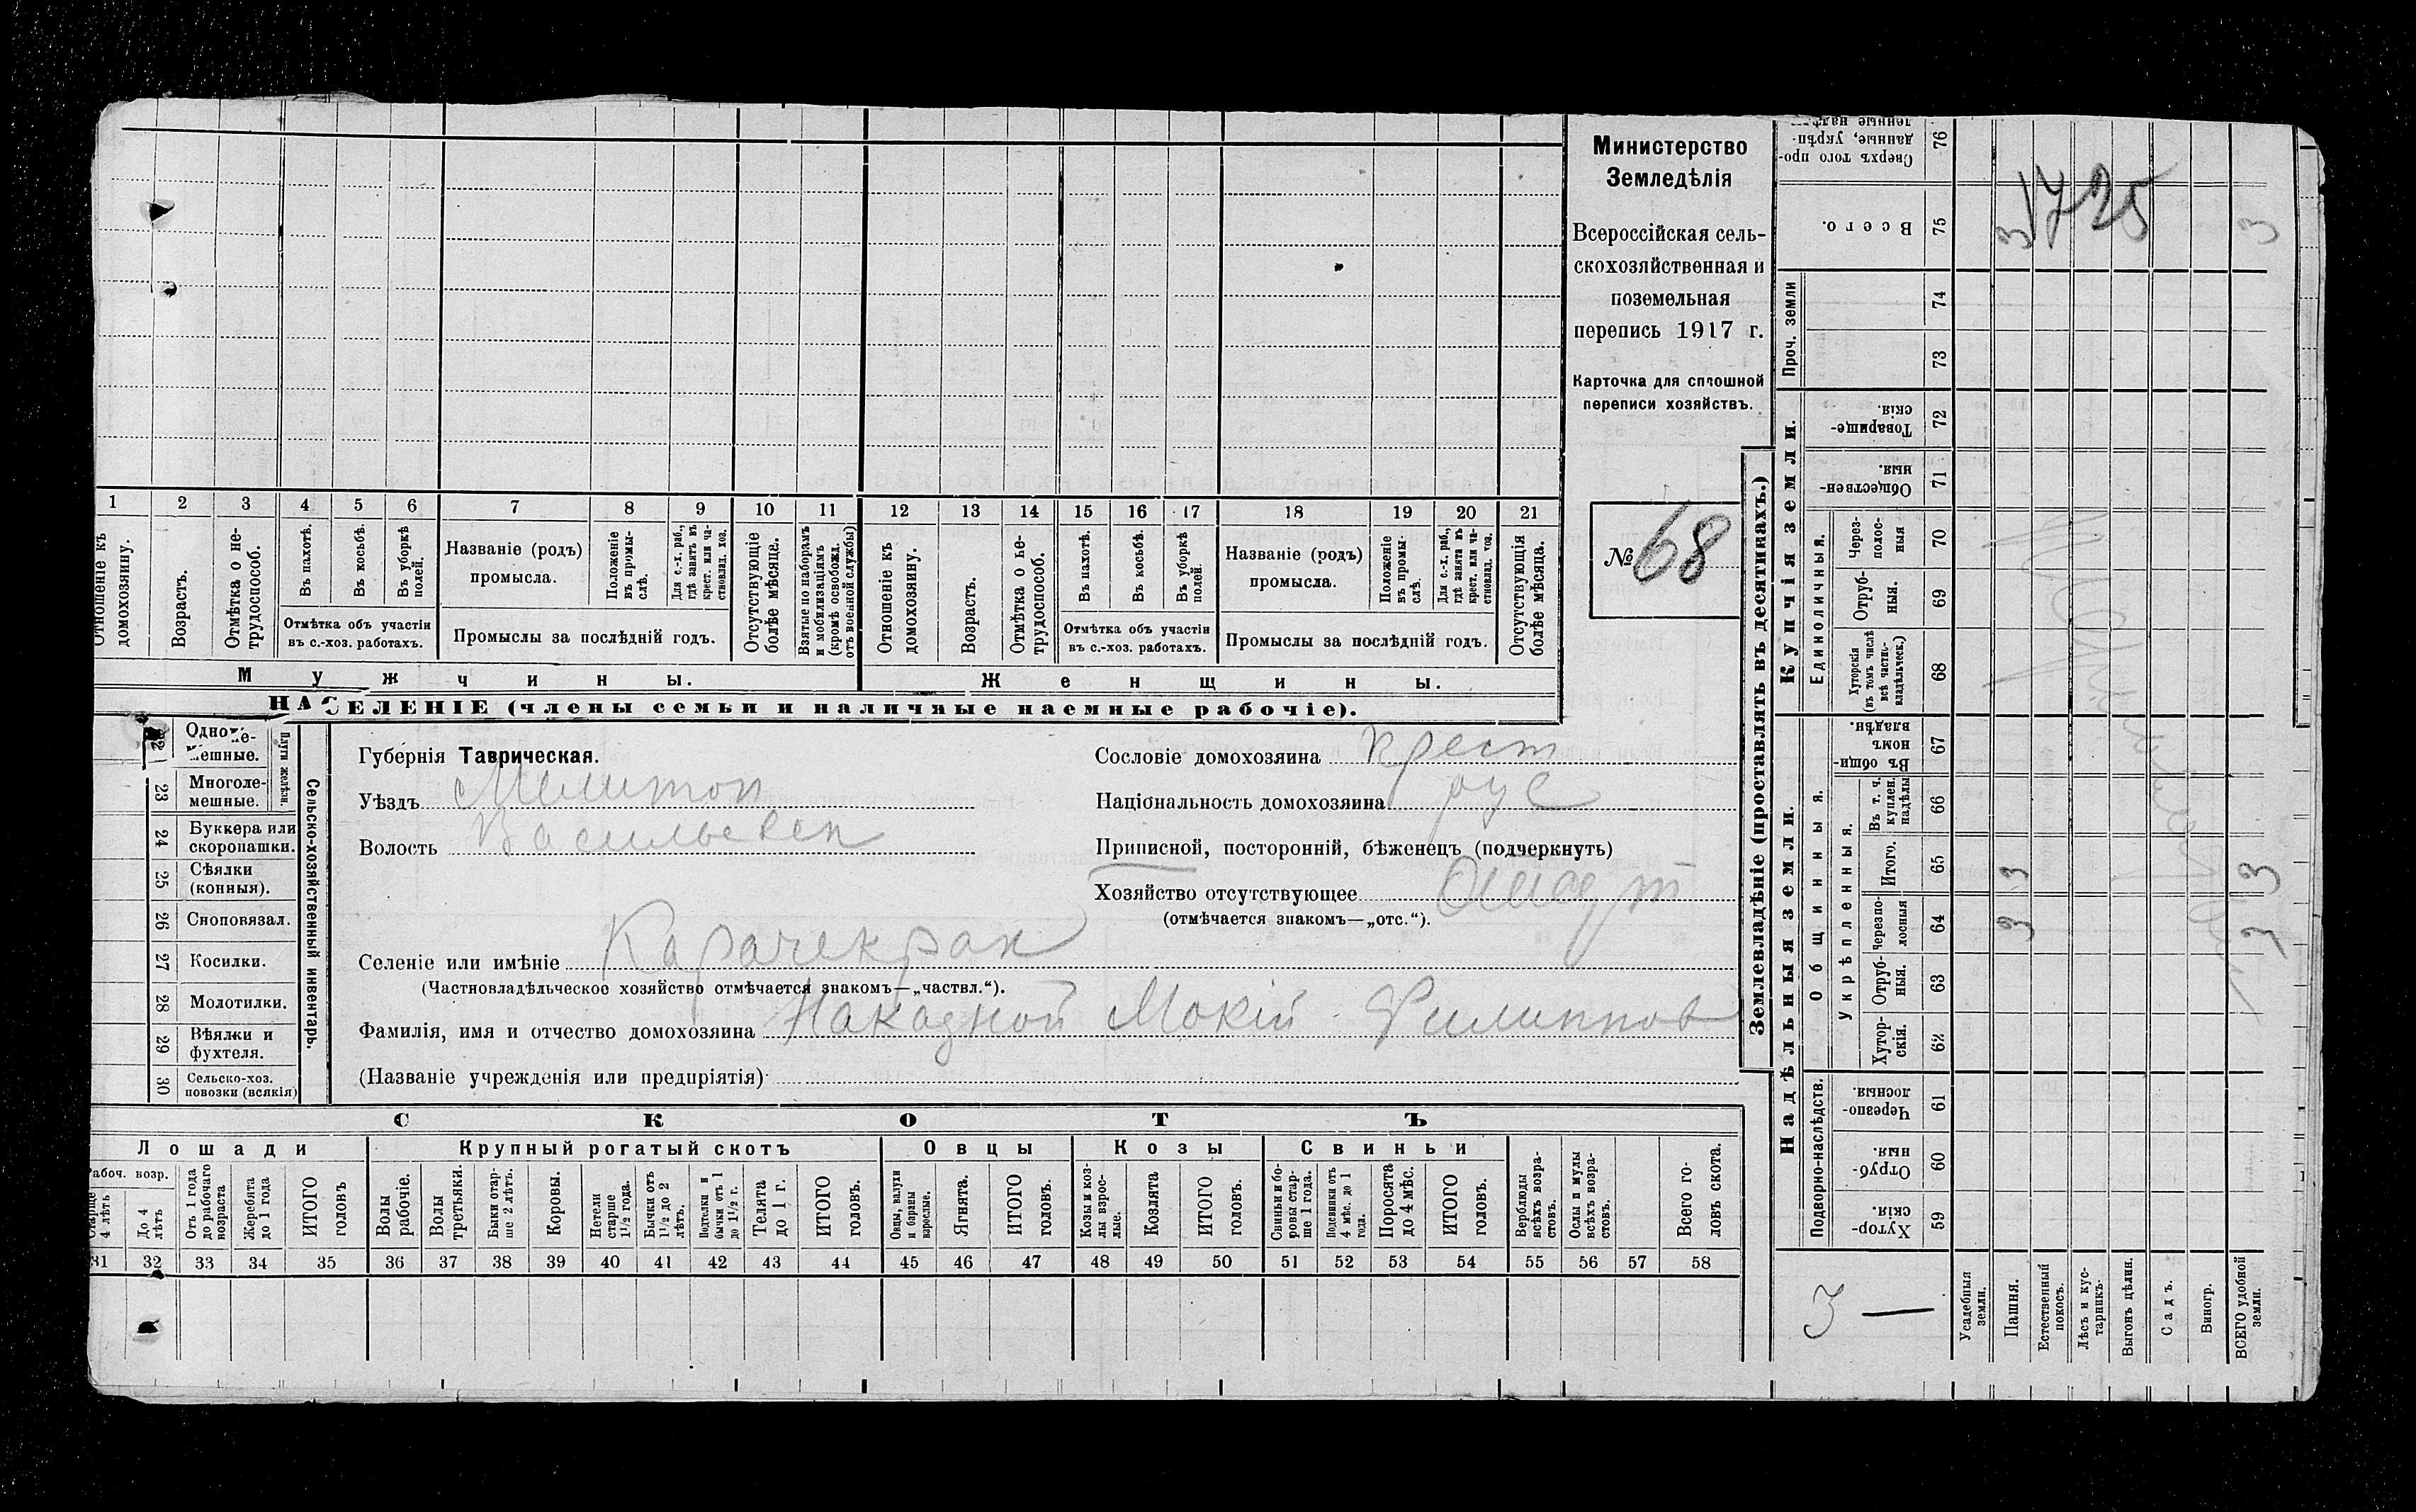 Министерство
Земледѣлія
Всероссійская сель-
скохозяйственная и
поземельная
перепись 1917 г.
Карточка для сплошной
переписи хозяйствъ.
№ 68
1 2 3 4 5 6 7 8 9 10 11 12 13 14 15 16 17 18 19 20 21
Отношеніе къ домохозяину.
Возрастъ.
Отмѣтка о не-трудоспособ.
Въ пахотѣ.
Въ косьбѣ.
Въ уборкѣ полей.
Отмѣтка объ участіи
въ с.-хоз. работахъ.
Названіе (родъ)
промысла.
Положеніе въ промы-слѣ.
Для с.-х. раб., гдѣ занятъ въ крест. или ча-стновлад. хоз.
Промыслы за послѣдній годъ.
Отсутствующіе болѣе мѣсяца.
Взятые по наборамъ и мобилизаціямъ (кромѣ освобожд. отъ военной службы)
Отношеніе къ домохозяину.
Возрастъ.
Отмѣтка о не-трудоспособ.
Въ пахотѣ.
Въ косьбѣ.
Въ уборкѣ полей.
Отмѣтка объ участіи
въ с.-хоз. работахъ.
Названіе (родъ)
промысла.
Положеніе въ промы-слѣ.
Для с.-х. раб., гдѣ занята въ крест. или ча-стновлад. хоз.
Промыслы за послѣдній годъ.
Отсутствующія болѣе мѣсяца.
Мужчины.
Женщины.
НАСЕЛЕНІЕ (члены семьи и наличные наемные рабочіе).
Плуги желѣзн.
23 Многоле-мешные.
24 Буккера или скоропашки.
25 Сѣялки (конныя).
26 Сноповязал.
27 Косилки.
28 Молотилки.
29 Вѣялки и фухтеля.
30 Сельско-хоз. повозки (всякія)
Сельско-хозяйственный инвентарь.
Губернія Таврическая.
Уѣздъ Мелитоп
Волость Васильевск
Сословіе домохозяина крест
Національность домохозяина рус
Приписной, посторонній, бѣженецъ (подчеркнуть)
Хозяйство отсутствующее
(отмѣчается знакомъ—„отс.“).
Селеніе или имѣніе Карачекрак
(Частновладѣльческое хозяйство отмѣчается знакомъ—„частвл.“).
Фамилія, имя и отчество домохозяина Накадной Мокій Филиппов
(Названіе учрежденія или предпріятія)
СКОТЪ
Лошади
Крупный рогатый скотъ
Овцы
Козы
Свиньи
Рабоч. возр.
Старше 4 лѣтъ
До 4 лѣтъ
Отъ 1 года до рабочаго возраста
Жеребята до 1 года
ИТОГО головъ
Волы рабочіе.
Волы третьяки.
Быки стар-ше 2 лѣтъ.
Коровы.
Нетели старше 1½ года.
Бычки отъ 1½ до 2 лѣтъ.
Подтелки и бычки отъ 1 до 1½ г.
Телята до 1 г.
ИТОГО головъ.
Овцы, валухи и бараны взрослые.
Ягнята.
ИТОГО головъ.
Козы и коз-лы взрос-лые.
Козлята
ИТОГО головъ.
Свиньи и бо-ровы стар-ше 1 года.
Подсвинки отъ 4 мѣс. до 1 года.
Поросята до 4 мѣс.
ИТОГО головъ.
Верблюды всѣхъ возра-стовъ.
Ослы и мулы всѣхъ возра-стовъ.
Всего го-ловъ скота.
31 32 33 34 35 36 37 38 39 40 41 42 43 44 45 46 47 48 49 50 51 52 53 54 55 56 57 58
Землевладѣніе (проставлять въ десятинахъ.)
Надѣльныя земли.
Купчія земли.
Проч. земли
Подворно-наслѣдств.
Общинныя.
Укрѣпленныя.
Единоличныя.
59 Хутор-скія.
60 Отруб-ныя.
61 Черезпо-лосныя.
62 Хутор-скія.
63 Отруб-ныя.
64 Черезпо-лосныя 3 3
65 Итого. 3 3
66 Въ т. ч. куплен. надѣлы
67 Въ общи-номъ владѣн.
68 Хуторскія (въ томъ числѣ всѣ частно-владѣльческ.)
69 Отруб-ныя.
70 Через-полос-ныя
71 Обществен-ныя.
72 Товарище-скія.
73
74
75 Всего. 3 3
76 Сверхъ того про-данные, укрѣп-
1725
3 —
Усадебныя земли.
Пашня.
Естественный покосъ.
Лѣсъ и кус-тарникъ.
Выгонъ цѣлин.
Садъ.
Виногр.
ВСЕГО удобной земли.